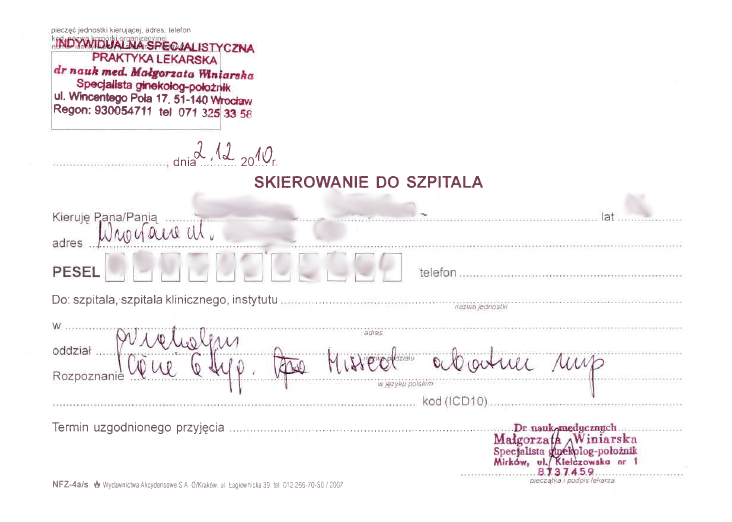 pieczęć jednostki kierującej, adres, telefon
INDYWIDUALNA SPECJALISTYCZNA
PRAKTYKA LEKARSKA
dr nauk med. Małgorzata Winiarska
Specjalista ginekolog-położnik
ul. Wincentego Pola 17, 51-140 Wrocław
Regon: 930054711 tel 071 325 33 58
dnia 2.12 2010r.
SKIEROWANIE DO SZPITALA
Kieruję Pana/Panią lat
adres Wrocław ul.
PESEL telefon
Do: szpitala, szpitala klinicznego, instytutu
nazwa jednostki
w
adres
oddział ginekologii
Rozpoznanie Ciąża 6 Hyp. Missed
w języku polskim
kod (ICD10)
Termin uzgodnionego przyjęcia
Dr nauk medycznych
Małgorzata Winiarska
Specjalista ginekolog-położnik
Mirków, ul. Kiełczowska nr 1
8737459
pieczątka i podpis lekarza
NFZ-4a/s Wydawnictwa Akcydensowe S.A. O/Kraków, ul. Łagiewnicka 39, tel. 012 255-70-50 / 2007